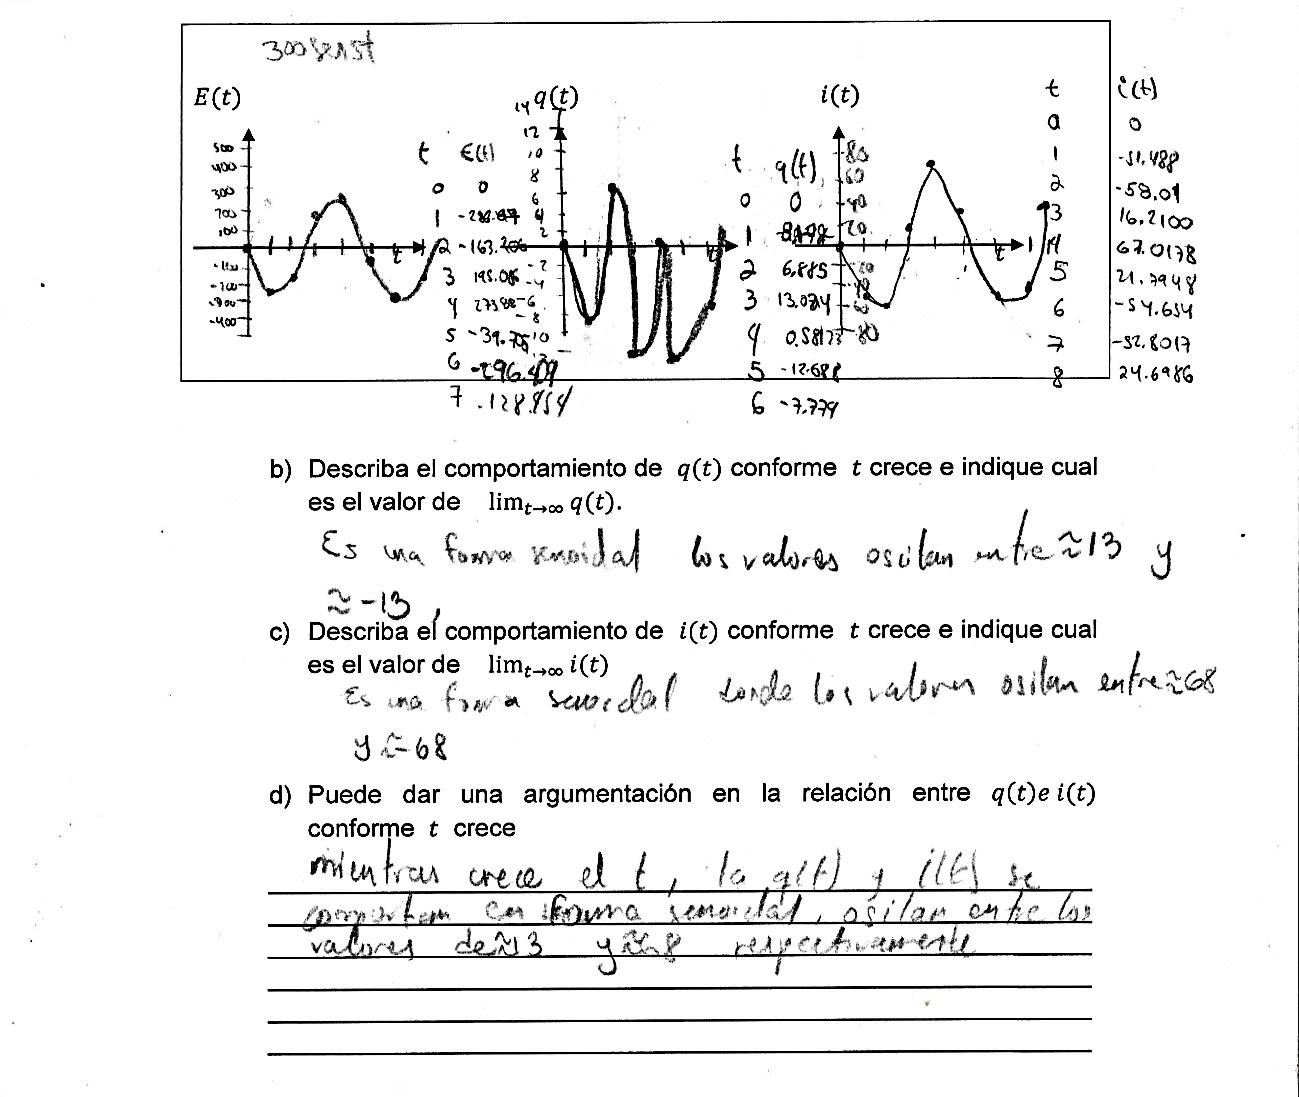 300 sen 5t
E(t)
500
400
300
200
100
-100
-200
-300
-400
t
t E(t)
0 0
1
2 -163.206
3 195.086
4 273.88
5
6
7
q(t)
14
12
10
8
6
4
2
-2
-4
-6
-8
t
t q(t)
0 0
1
2 6.885
3 13.024
4 0.58173
5 -12.688
6 -7.779
i(t)
80
60
40
20
-80
t
t i(t)
0 0
1 -51.488
2 -58.01
3 16.2100
4 67.0178
5 21.7948
6 -54.654
7 -52.8017
8 24.6986
b) Describa el comportamiento de q(t) conforme t crece e indique cual
es el valor de lim t→∞ q(t).
Es una forma senoidal los valores oscilan entre ≈13 y
≈ -13,
c) Describa el comportamiento de i(t) conforme t crece e indique cual
es el valor de lim t→∞ i(t)
Es una forma senoidal donde los valores osilan entre ≈68
y ≈-68
d) Puede dar una argumentación en la relación entre q(t)e i(t)
conforme t crece
mientras crece el t, la q(t) y i(t) se
comportan en forma senoidal, osilan entre los
valores de ≈13 y respectivamente